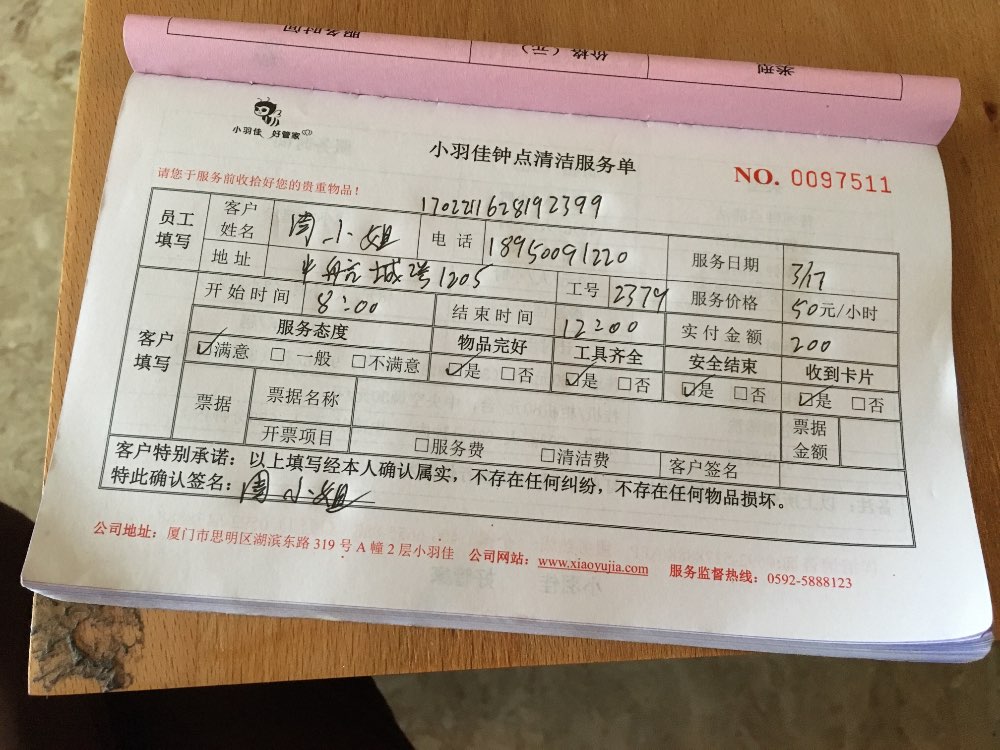 服务时间 价格（元） 类型
小羽佳 好管家
小羽佳钟点清洁服务单
NO. 0097511
请您于服务前收拾好您的贵重物品！
员工填写 客户姓名 周小姐 电话 18950091220 服务日期 3/17
地址 中航城2号1205 工号 2379 服务价格 50元/小时
客户填写 开始时间 8:00 结束时间 12:00 实付金额 200
服务态度 物品完好 工具齐全 安全结束 收到卡片
☑满意 □一般 □不满意 ☑是 □否 ☑是 □否 ☑是 □否 ☑是 □否
票据 票据名称 票据金额
开票项目 □服务费 □清洁费 客户签名
客户特别承诺：以上填写经本人确认属实，不存在任何纠纷，不存在任何物品损坏。
特此确认签名：周小姐
公司地址：厦门市思明区湖滨东路 319 号 A 幢 2 层小羽佳 公司网站：www.xiaoyujia.com 服务监督热线：0592-5888123